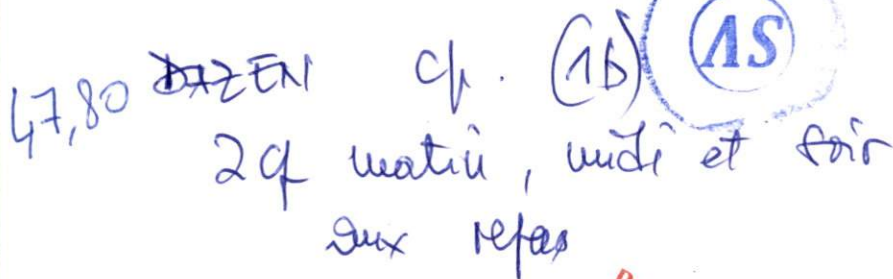 47,80 DAZEN cp. (1b) AS
2cp matin, midi et soir
aux repas